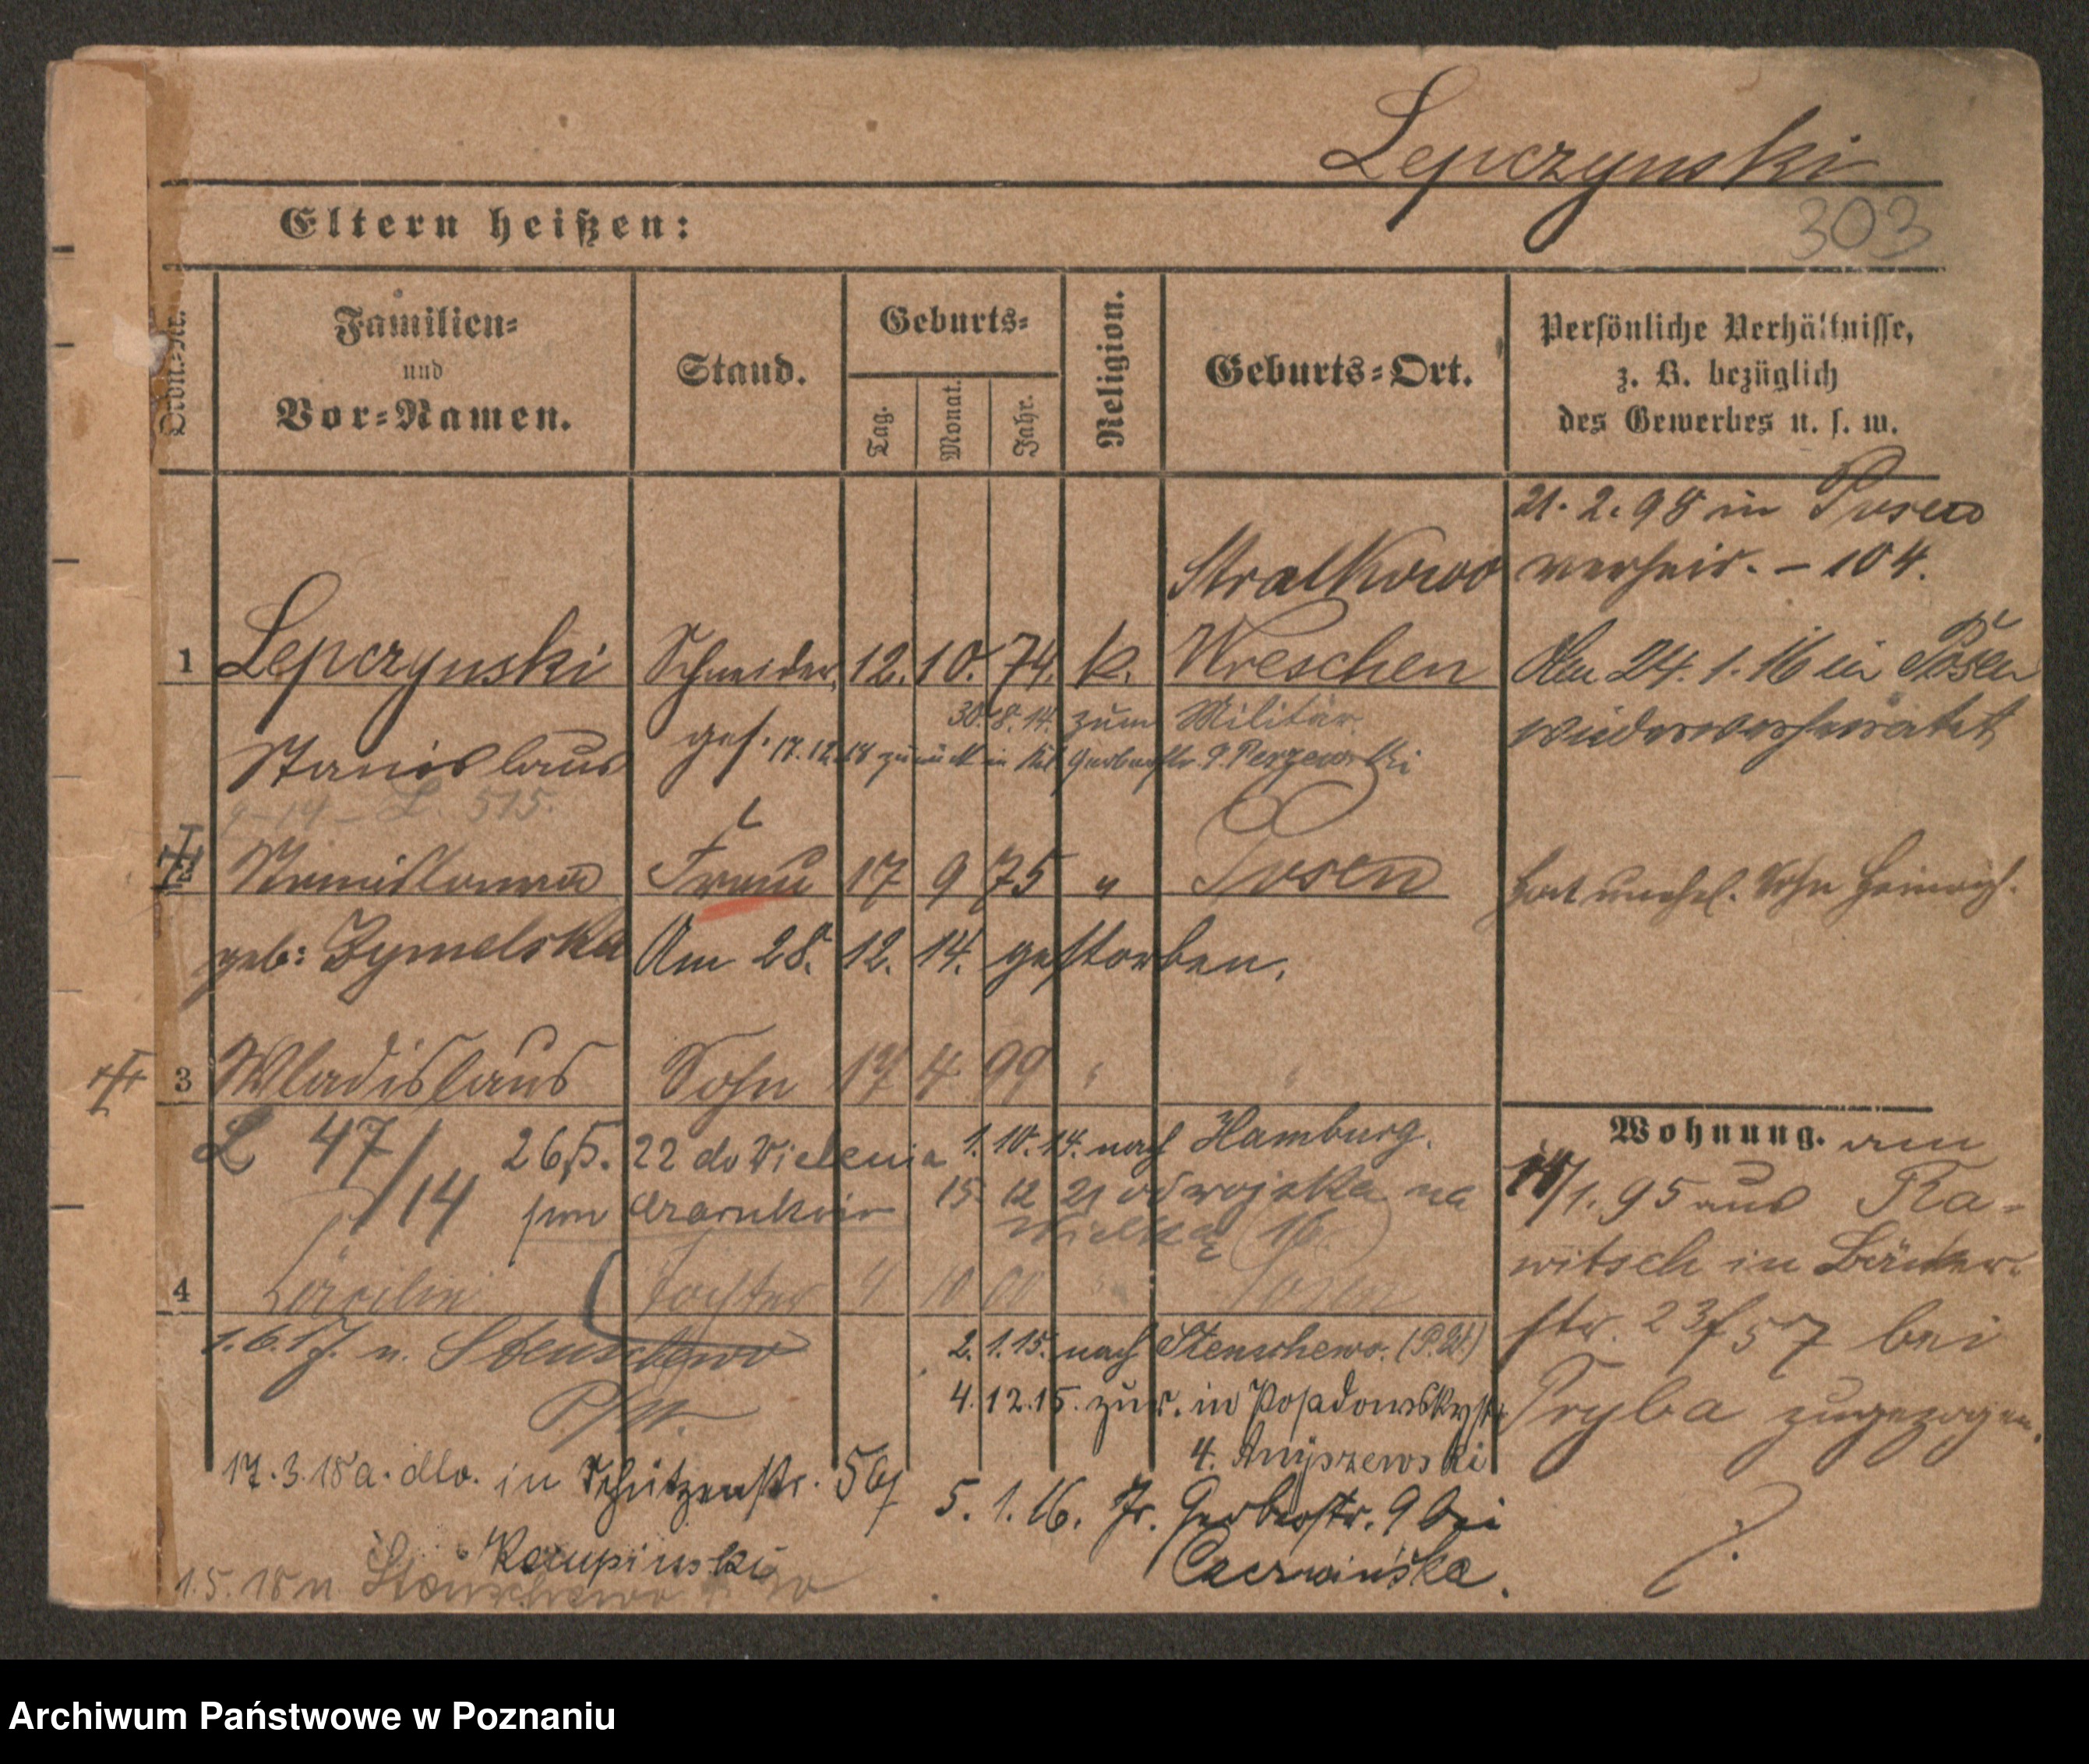 Lepczynski
303
Eltern heißen:
Ordn.-Nr.
Familien-
und
Vor-Namen.
Stand.
Geburts-
Tag.
Monat.
Jahr.
Religion.
Geburts-Ort.
Persönliche Verhältnisse,
z. B. bezüglich
des Gewerbes u. s. w.
21. 2. 98 in Posen
verheir. - 104.
Stralkowo
1 Lepczynski Schneider, 12. 10. 74. k. Wreschen
Am 24. 1. 16 in Posen
wiederverheiratet
30. 8. 14. zum Militär.
Stanislaus
gef. 17. 12. 18 zurück in Gerberstr. 9
9-14 - L. 515.
Stanislawa Frau 17 9 75 " Posen
hat unehel. Sohn
geb: Zymelska Am 28. 12. 14. gestorben.
3 Wladislaus Sohn 17 4 99 " "
L 47/14
26.5.22 do Wielenia
pow czarnków
1. 10. 14. nach Hamburg.
15 12 21 od wojska na
Wielka 16
4 Cäcilie Tochter 4 10 00 " Posen
1.6.17. n. Stenschewo
P/W.
2. 1. 15. nach Stenschewo. (P.W.)
4. 12. 15. zur. in Posadowskystr
4.
17. 3. 18 a. dto. in Schützenstr.
5. 1. 16. Gr. Gerberstr. 9 bei
Czerwińska.
1. 5. 18 n Stenschewo
Wohnung. am
1. 95 aus Ra-
witsch in Bäcker-
str. 23/57 bei
Pryba zugezogen.
Archiwum Państwowe w Poznaniu